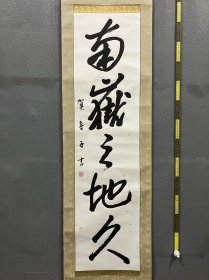 南嶽之地久